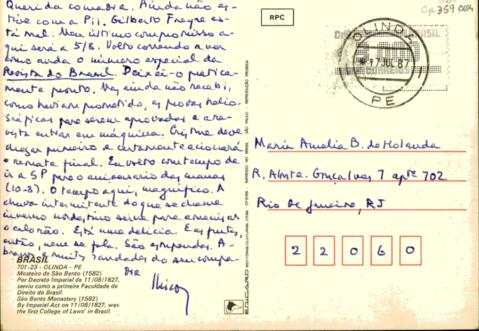 Querida comadre. Ainda não es-
tive com a Pii. Gilberto Freyre es-
tá mal. Meu último compromisso a-
qui será a 5/8. Volto correndo a ver
como anda o número especial da
Revista do Brasil. Deixei-o pratica-
mente pronto. Mas ainda não recebi,
como haviam prometido, as provas helio-
gráficas para serem aprovadas e a re-
vista entrar em máquina. Cristina deve
chegar primeiro e certamente acionará
o remate final. Eu volto com tempo de
ir a SP para o aniversário das manas
(10-8). O tempo aqui, magnífico. A
chuva intermitente do que se chama
inverno nordestino serve para amenizar
o calorão. Está uma delícia. E as frutas,
então, nem se fala. São estupendas. A-
braços e muitas saudades do seu compa-
dre
BRASIL
701-23 - OLINDA - PE
Mosteiro de São Bento (1582)
Por Decreto Imperial de 11/08/1827,
serviu como a primeira Faculdade de
Direito do Brasil.
São Bento Monastery (1582)
By Imperial Act on 11/08/1827, was
the first College of Laws' in Brasil.
RPC
OLINDA
17 JUL 87
PE
BRASIL
CORREIOS
Maria Amelia B. de Holanda
R. Almte. Gonçalves, 7 aptº 702
Rio de Janeiro, RJ
2 2 0 6 0